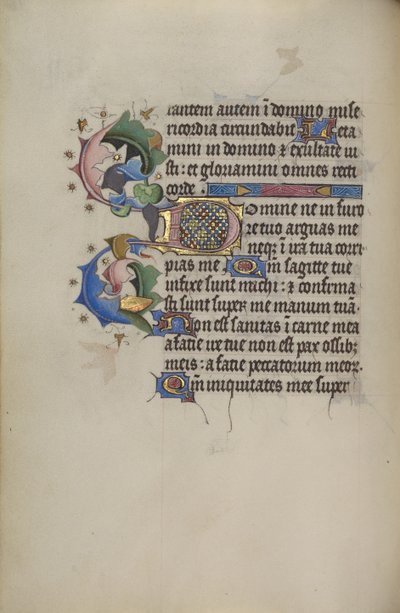 rantem autem ī domino mise
ricordia circundabit Leta
mini in domino ⁊ exultate iu
sti : et gloriamini omnes recti
corde .
Domine ne in furo
re tuo arguas me
neqꝫ ī ira tua corri
pias me Qm̄ sagitte tue
infixe sunt michi : ⁊ confirma
sti sunt super me manum tuā .
Non est sanitas ī carne mea
a facie ire tue non est pax ossibꝫ
meis : a facie peccatorum meoꝝ .
Qm̄ iniquitates mee super